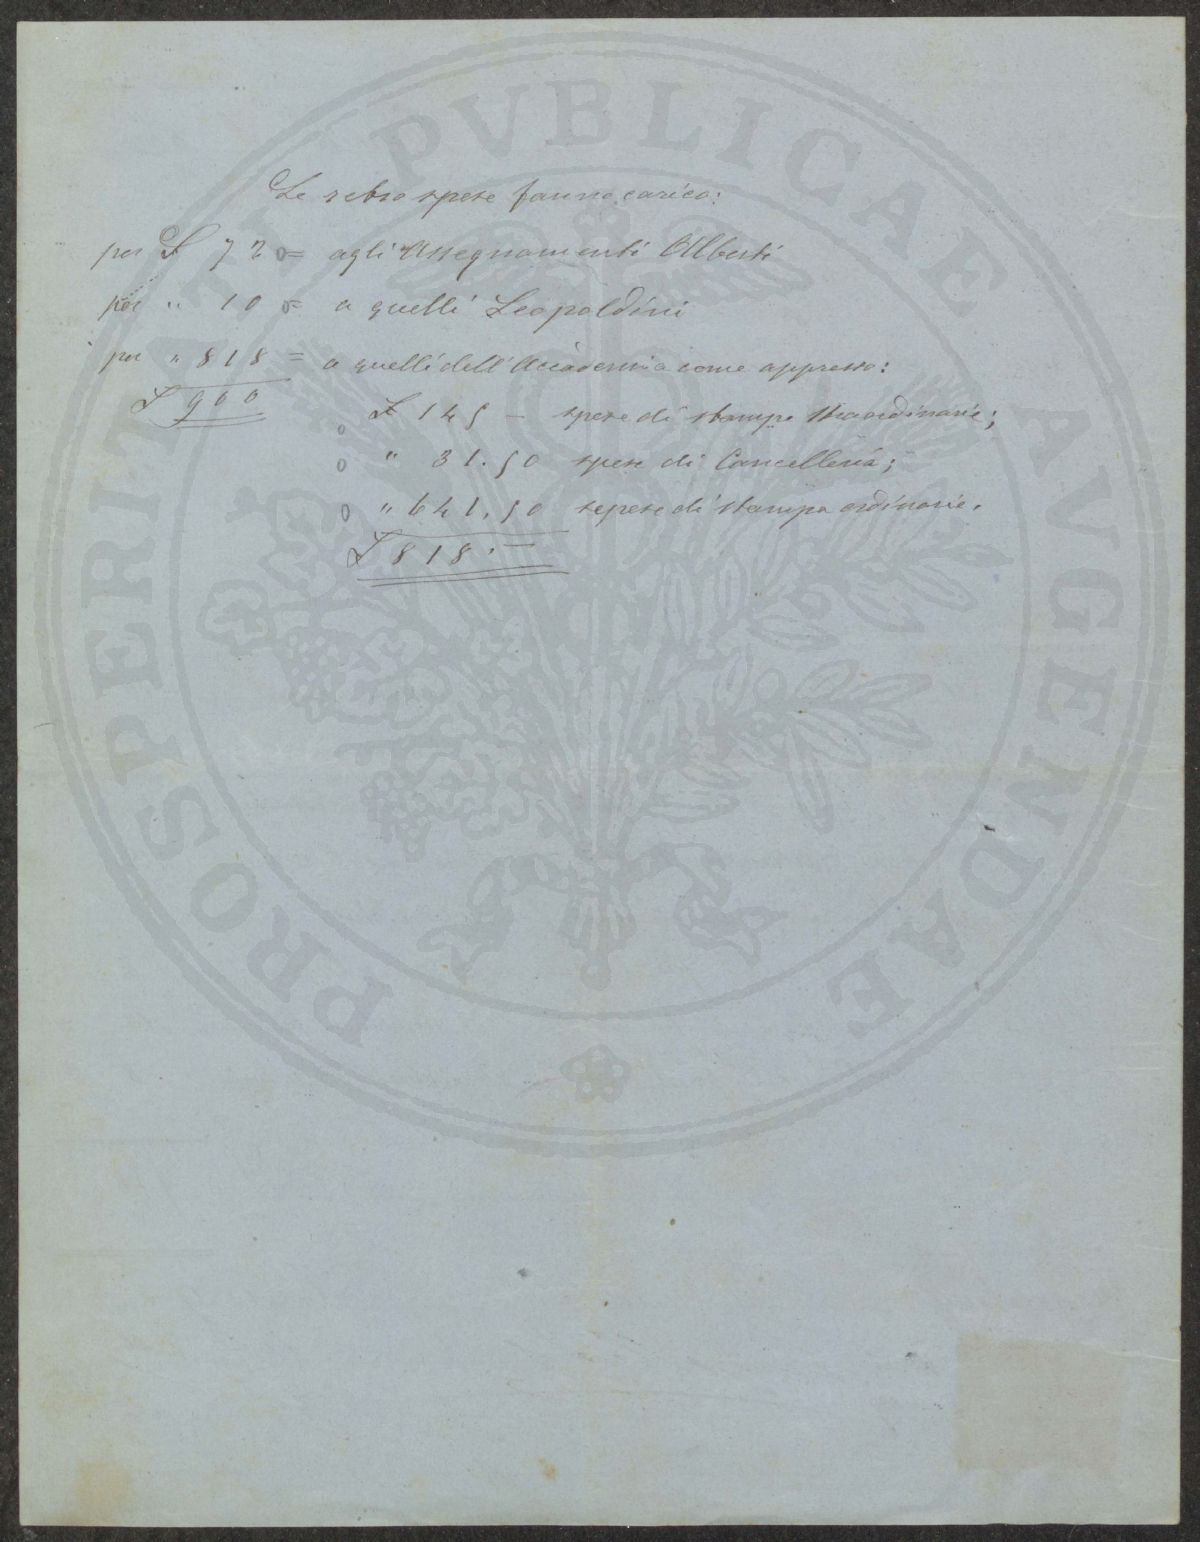 Le retro spese fanno carico:
per £ 72 = agli Assegnamenti Alberti
per " 10 = a quelli Leopoldini
per " 818 = a quelli dell'Accademia come appresso:
£ 900
£ 145 — spese di stampe straordinarie;
" 31.50 spese di Cancelleria;
" 641.50 sepese di stampa ordinarie.
£ 818.—
PROSPERITATI PVBLICAE AVGENDAE